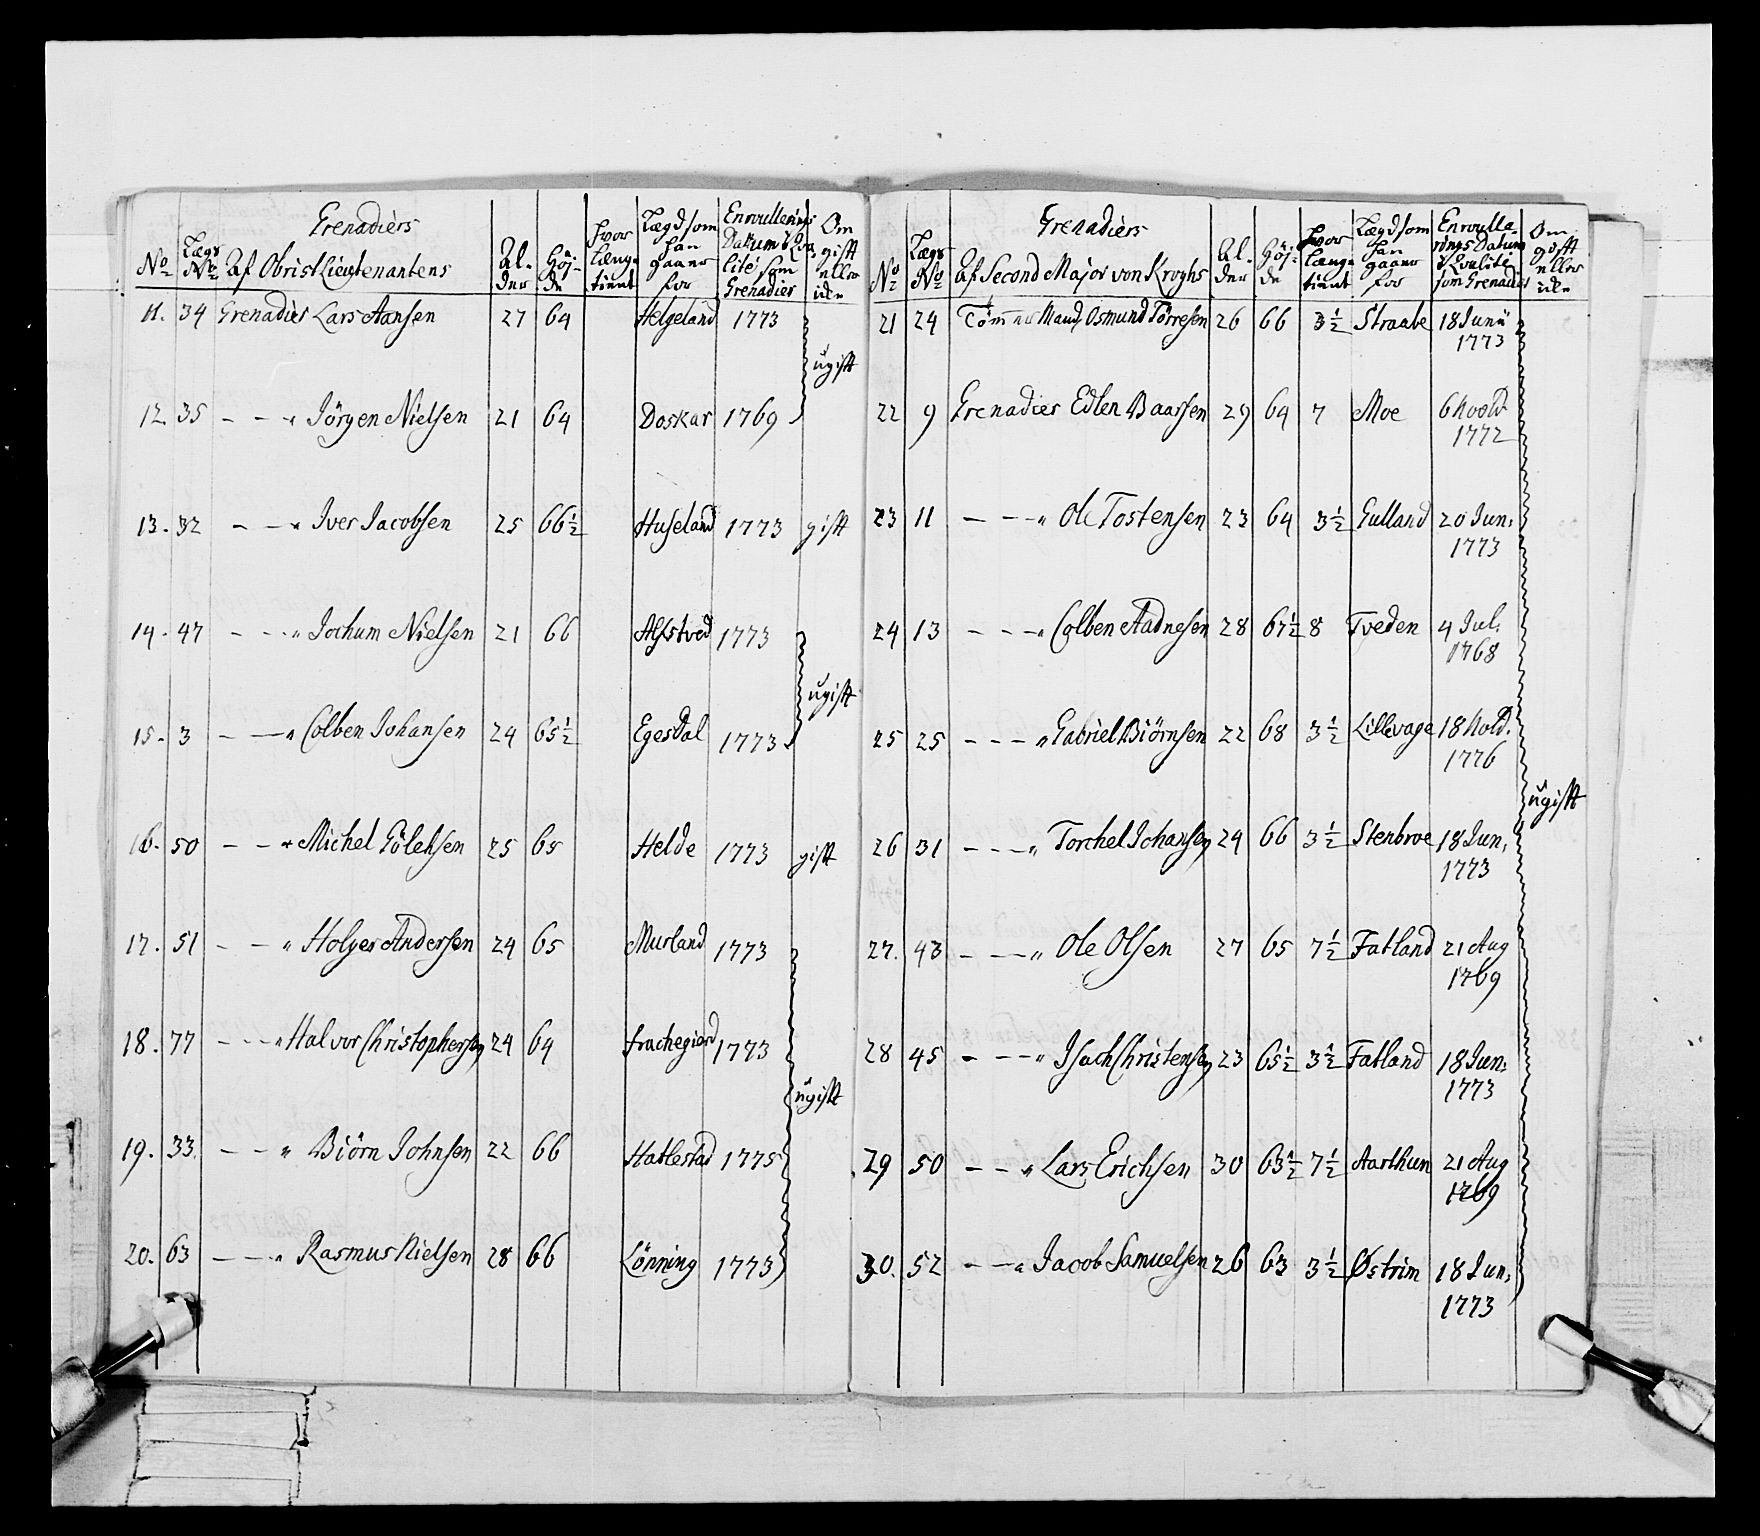 Grenadiers
No Lægs No Af Obrist Lieutenantens Al- der Höj- de hvor længe tient Lægd som han gaaer for Enroullerings Datum i Qva- lité som Grenadier Om gift eller ikke
11. 34 Grenadier Lars Hansen 27 64 Helgeland 1773
ugift
12. 35 — — " Jörgen Nielsen 21 64 Doskar 1769
13. 32 — — " Iver Jacobsen 25 66½ Huseland 1773 gift
14. 47 — — " Jochum Nielsen 21 66 Alfstved 1773
ugift
15. 3 — — " Colben Johansen 24 65½ Egesdal 1773
16. 50 — — " Michel Gölchsen 25 65 Helde 1773 gift
17. 51 — — " Holger Andersen 24 65 Murland 1773
18. 77 — — " Halvor Christophersen 24 64 Frachegiord 1773
ugift
19. 33. — — " Biörn Johnsen 22 66 Hatlestad 1775
20. 63 — — " Rasmus Nielsen 28 66 Lönning 1773
Grenadiers
No Lægs No Af Second Major von Kroghs Al- der Höj- de hvor længe tient Lægd som han gaaer for Enroulle- rings Datum i Qvalité som Grenadier Om gift eller ikke
21 24 Tömmer Mand Osmund Törresen 26 66 3½ Straabe 18 Junii
1773
22 9 Grenadier Edlen Baarsen 29 64 7 Moe 6 Novbr
1772
23 11 — — " Ole Tostensen 23 64 3½ Gulland 20 Jun:
1773
24 13 — — " Colben Aadnesen 28 67½ 8 Tveden 4 Jul:
1768
25 25 — — " Gabriel Biörnsen 22 68 3½ Lillevage 18
1776
ugift
26 31 — — " Torchel Johansen 24 66 3½ Stenbroe 18 Jun:
1773
27. 43 — — " Ole Olsen 27 65 7½ Fatland 21 Aug
1769
28 45 — — " Isach Christensen 23 65½ 3½ Fatland 18 Jun:
1773
29 50 — — " Lars Erichsen 30 63½ 7½ Aarthun 21 Aug
1769
30. 52 — — " Jacob Samuelsen 26 63 3½ Østrim 18 Jun:
1773